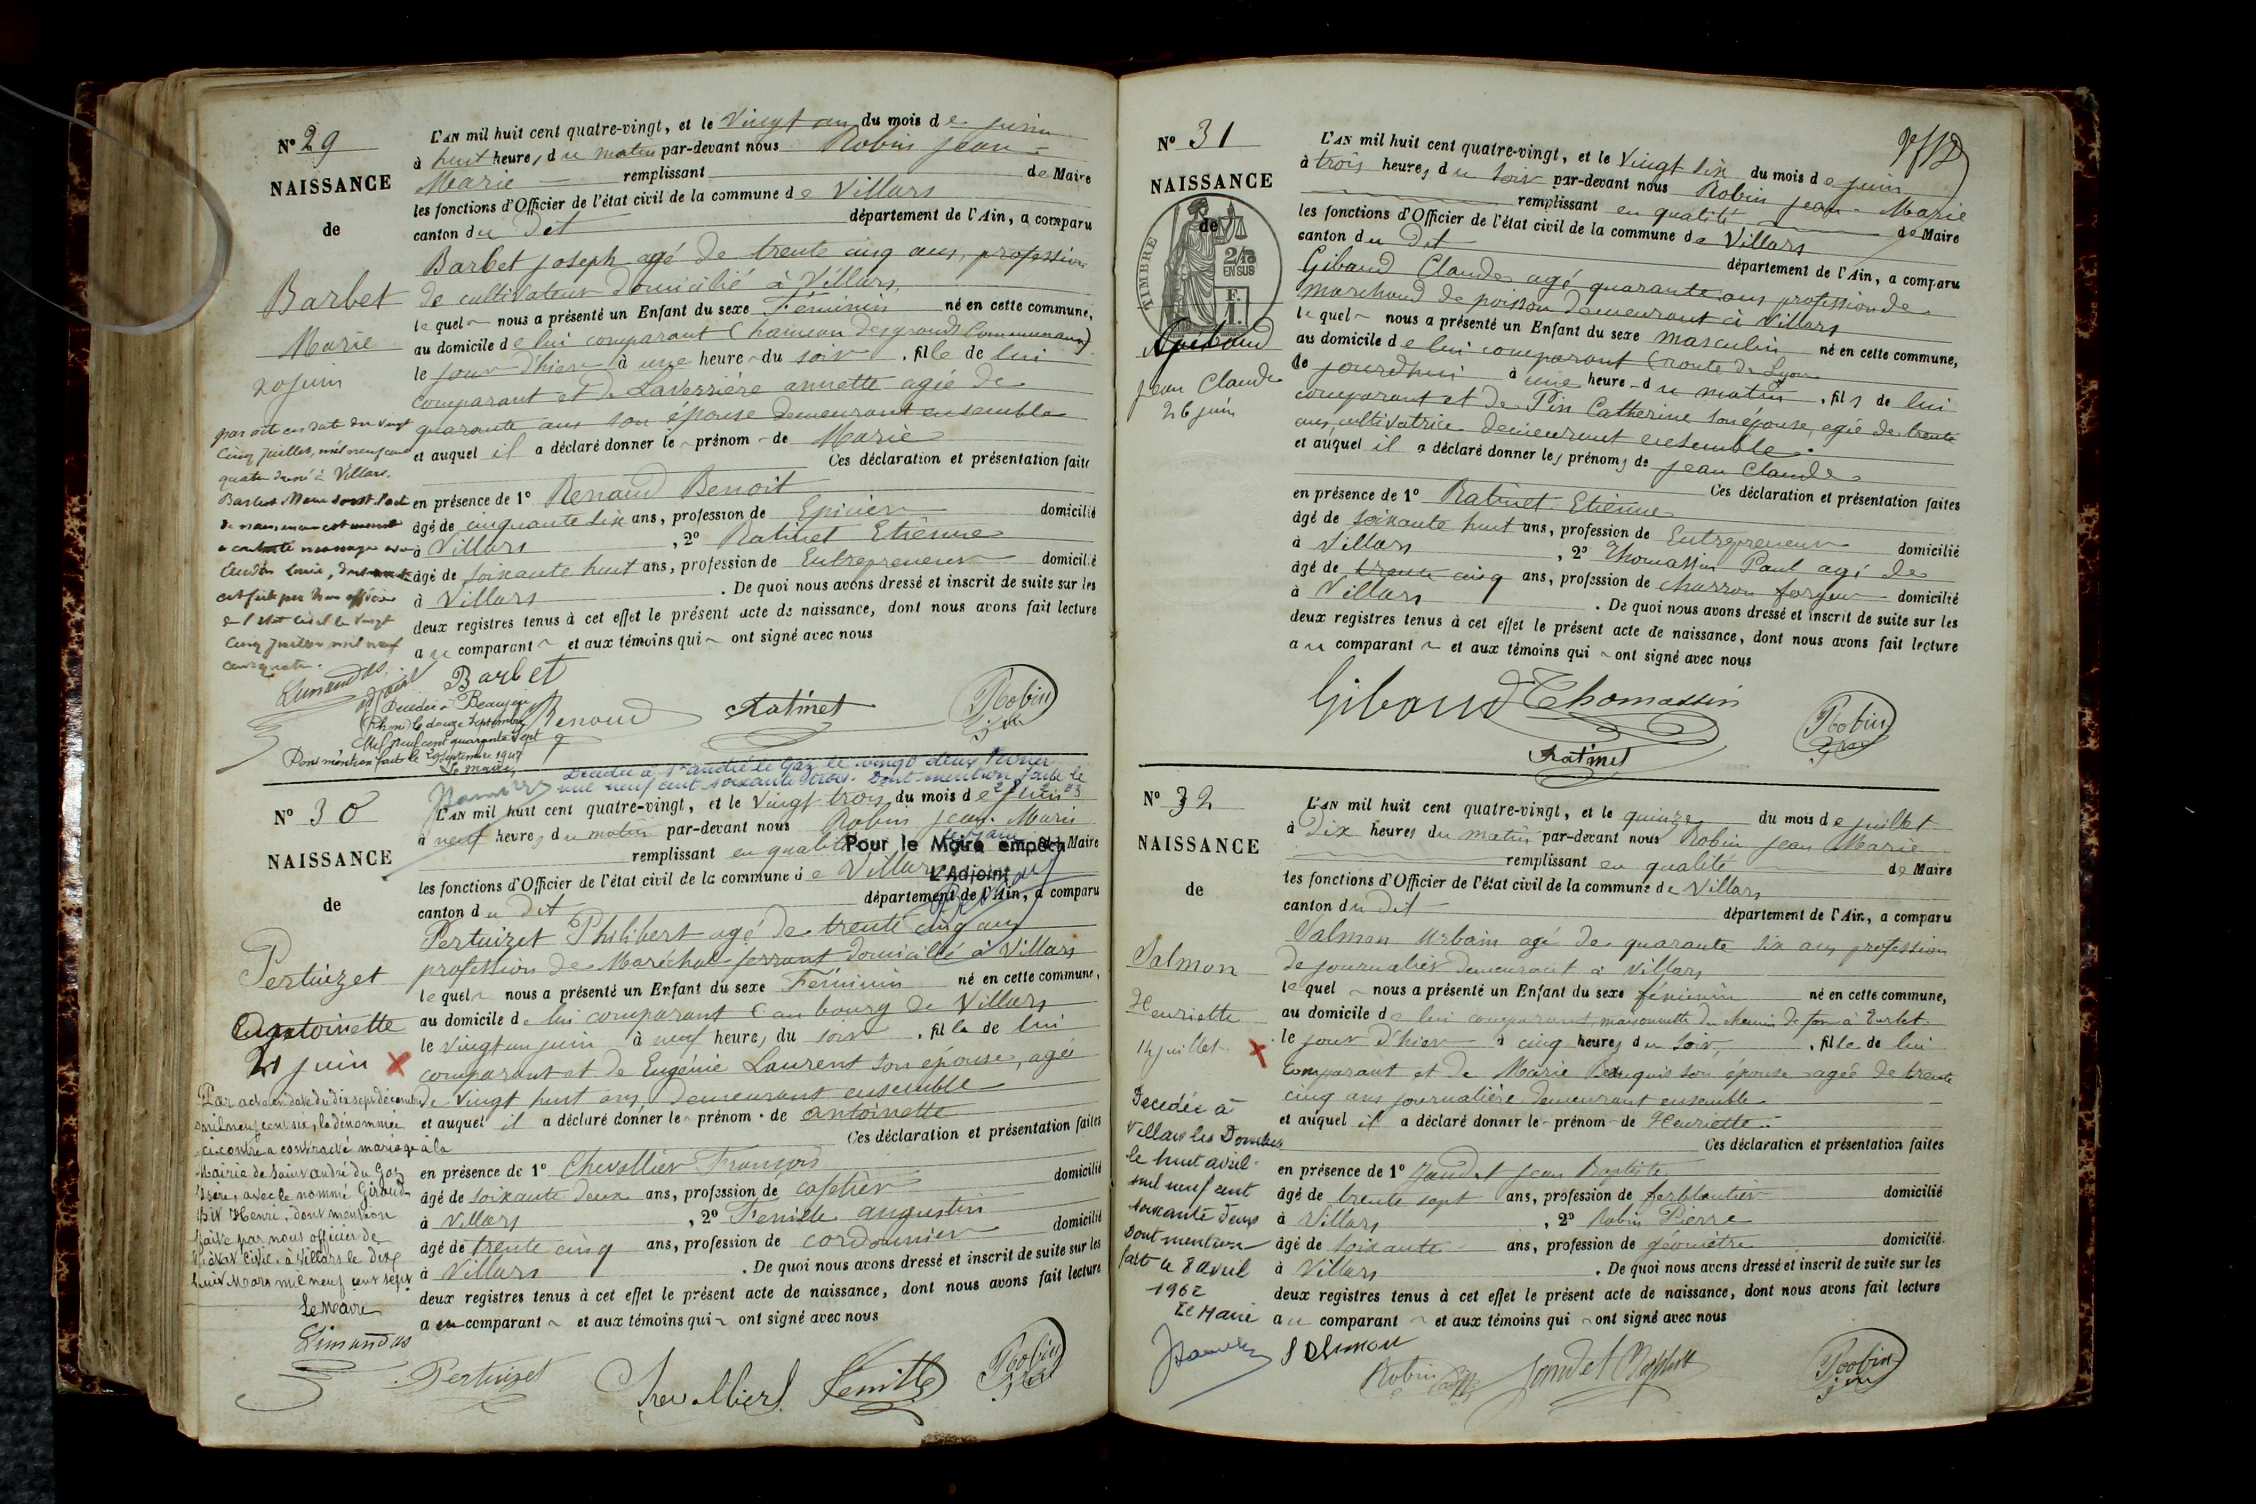 N° 29
NAISSANCE
de
Barbet
Marie
20 juin
L'AN mil huit cent quatre-vingt, et le Vingt un du mois de juin
à huit heures du matin par-devant nous Robin Jean
Marie remplissant de Maire
les fonctions d'Officier de l'état civil de la commune de Villars
canton du dit département de l'Ain, a comparu
Barbet Joseph agé de trente cinq ans, profession
de cultivateur domicilié à Villars,
lequel nous a présenté un Enfant du sexe Féminin né en cette commune,
au domicile de lui comparant (hameau des grands Communaux)
le jour d'hier à une heure du soir, fille de lui
comparant et de Laverrière annette agée de
quarante ans son épouse demeurant ensemble
et auquel il a déclaré donner le prénom de Marie
Ces déclaration et présentation faites
en présence de 1° Renaud Benoit
âgé de cinquante six ans, profession de Epicier domicilié
à Villars, 2° Ratinet Etienne
âgé de soixante huit ans, profession de Entrepreneur domicilié
à Villars. De quoi nous avons dressé et inscrit de suite sur les
deux registres tenus à cet effet le présent acte de naissance, dont nous avons fait lecture
au comparant et aux témoins qui ont signé avec nous
par acte en date du vingt
cinq juillet, mil neuf cent
quatre à Villars.
de l'état civil le vingt
cinq juillet mil neuf
cent quatre.
Limandas
Barbet
Renaud
Ratinet
Robin
Décédée à Beaujeu
(Rhône) le douze septembre
Mil neuf cent quarante sept
Dont mention faite le 20 septembre 1947
Le maire,
Décédée à St andré le Gaz le vingt deux février
mil neuf cent soixante trois. Dont mention faite le
N° 30
NAISSANCE
de
Pertuizet
antoinette
21 juin
L'AN mil huit cent quatre-vingt, et le Vingt trois du mois de juin
à neuf heures du matin par-devant nous Robin Jean. Marie
remplissant en qualité de Maire
Pour le Maire empêché
L'Adjoint
les fonctions d'Officier de l'état civil de la commune de Villars
canton du dit département de l'Ain, a comparu
Pertuizet Philibert agé de trente cinq ans
profession de Maréchal ferrant domicilié à Villars
lequel nous a présenté un Enfant du sexe Féminin né en cette commune,
au domicile de lui comparant (au bourg de Villars
le vingt un juin à neuf heures du soir, fille de lui
comparant et de Eugénie Laurent son épouse, agée
de vingt huit ans demeurant ensemble
et auquel il a déclaré donner le prénom de antoinette
Ces déclaration et présentation faites
en présence de 1° Chevallier François
âgé de soixante deux ans, profession de cafetier domicilié
à Villars, 2° Fenille augustin
âgé de trente cinq ans, profession de cordonnier domicilié
à Villars. De quoi nous avons dressé et inscrit de suite sur les
deux registres tenus à cet effet le présent acte de naissance, dont nous avons fait lecture
au comparant et aux témoins qui ont signé avec nous
Par acte en date du dix sept décembre
mil neuf cent six, la dénommée
ci-contre a contracté mariage à la
Mairie de Saint andré du Gaz
Isère, avec le nommé Giroud
Henri, dont mention
faite par nous officier de
l'état civil à Villars le dix
huit Mars mil neuf cent sept
Le Maire
Limandas
Pertuizet
Chevallier
Fenille
Robin
N° 31
NAISSANCE
de
TIMBRE
2/10
EN SUS
Gibaud
Jean Claude
26 juin
L'AN mil huit cent quatre-vingt, et le Vingt six du mois de juin
à trois heures du soir par-devant nous Robin Jean-Marie
remplissant en qualité de Maire
les fonctions d'Officier de l'état civil de la commune de Villars
canton du dit département de l'Ain, a comparu
Gibaud Claude agé quarante ans profession de
marchand de poisson demeurant à Villars
lequel nous a présenté un Enfant du sexe masculin né en cette commune,
au domicile de lui comparant (route de Lyon
le jourdhui à une heure du matin, fils de lui
comparant et de Pin Catherine son épouse, agée de trente
ans, cultivatrice demeurant ensemble.
et auquel il a déclaré donner les prénoms de Jean Claude
Ces déclaration et présentation faites
en présence de 1° Ratinet Etienne
âgé de soixante huit ans, profession de Entrepreneur domicilié
à Villars, 2° Thomassin Paul agé de
âgé de trente cinq ans, profession de charron forgeur domicilié
à Villars. De quoi nous avons dressé et inscrit de suite sur les
deux registres tenus à cet effet le présent acte de naissance, dont nous avons fait lecture
au comparant et aux témoins qui ont signé avec nous
Gibaud Thomassin
Ratinet
Robin
N° 32
NAISSANCE
de
Salmon
Henriette
14 juillet
L'AN mil huit cent quatre-vingt, et le quinze du mois de juillet
à Dix heures du matin par-devant nous Robin Jean Marie
remplissant en qualité de Maire
les fonctions d'Officier de l'état civil de la commune de Villars
canton du dit département de l'Ain, a comparu
Salmon Urbain agé de quarante six ans profession
de journalier demeurant à Villars
lequel nous a présenté un Enfant du sexe féminin né en cette commune,
au domicile de lui comparant, maisonnette du chemin de fer à
le jour d'hier à cinq heures du soir, fille de lui
comparant et de Marie son épouse agée de trente
cinq ans journalière demeurant ensemble
et auquel il a déclaré donner le prénom de Henriette
Ces déclaration et présentation faites
en présence de 1° Jaudet Jean Baptiste
âgé de trente sept ans, profession de ferblantier domicilié
à Villars, 2° Robin Pierre
âgé de soixante ans, profession de géomètre domicilié
à Villars. De quoi nous avons dressé et inscrit de suite sur les
deux registres tenus à cet effet le présent acte de naissance, dont nous avons fait lecture
au comparant et aux témoins qui ont signé avec nous
Decedée à
Villars les Dombes
le huit avril
mil neuf cent
soixante deux
Dont mention
faite le 8 avril
1962
Le Maire
Salmon
Robin
Jaudet Baptiste
Robin